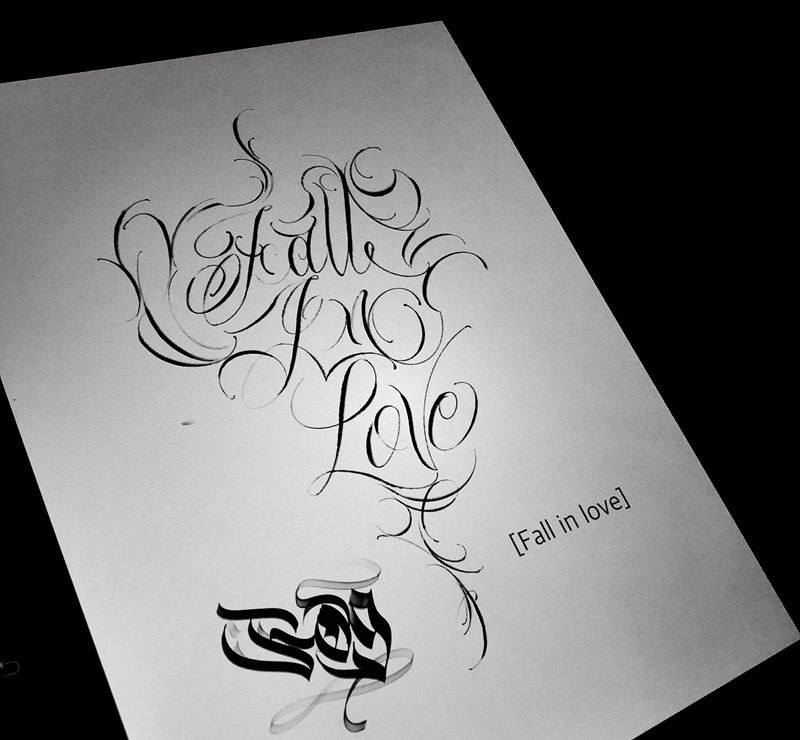 Fall
In
Love
[Fall in love]